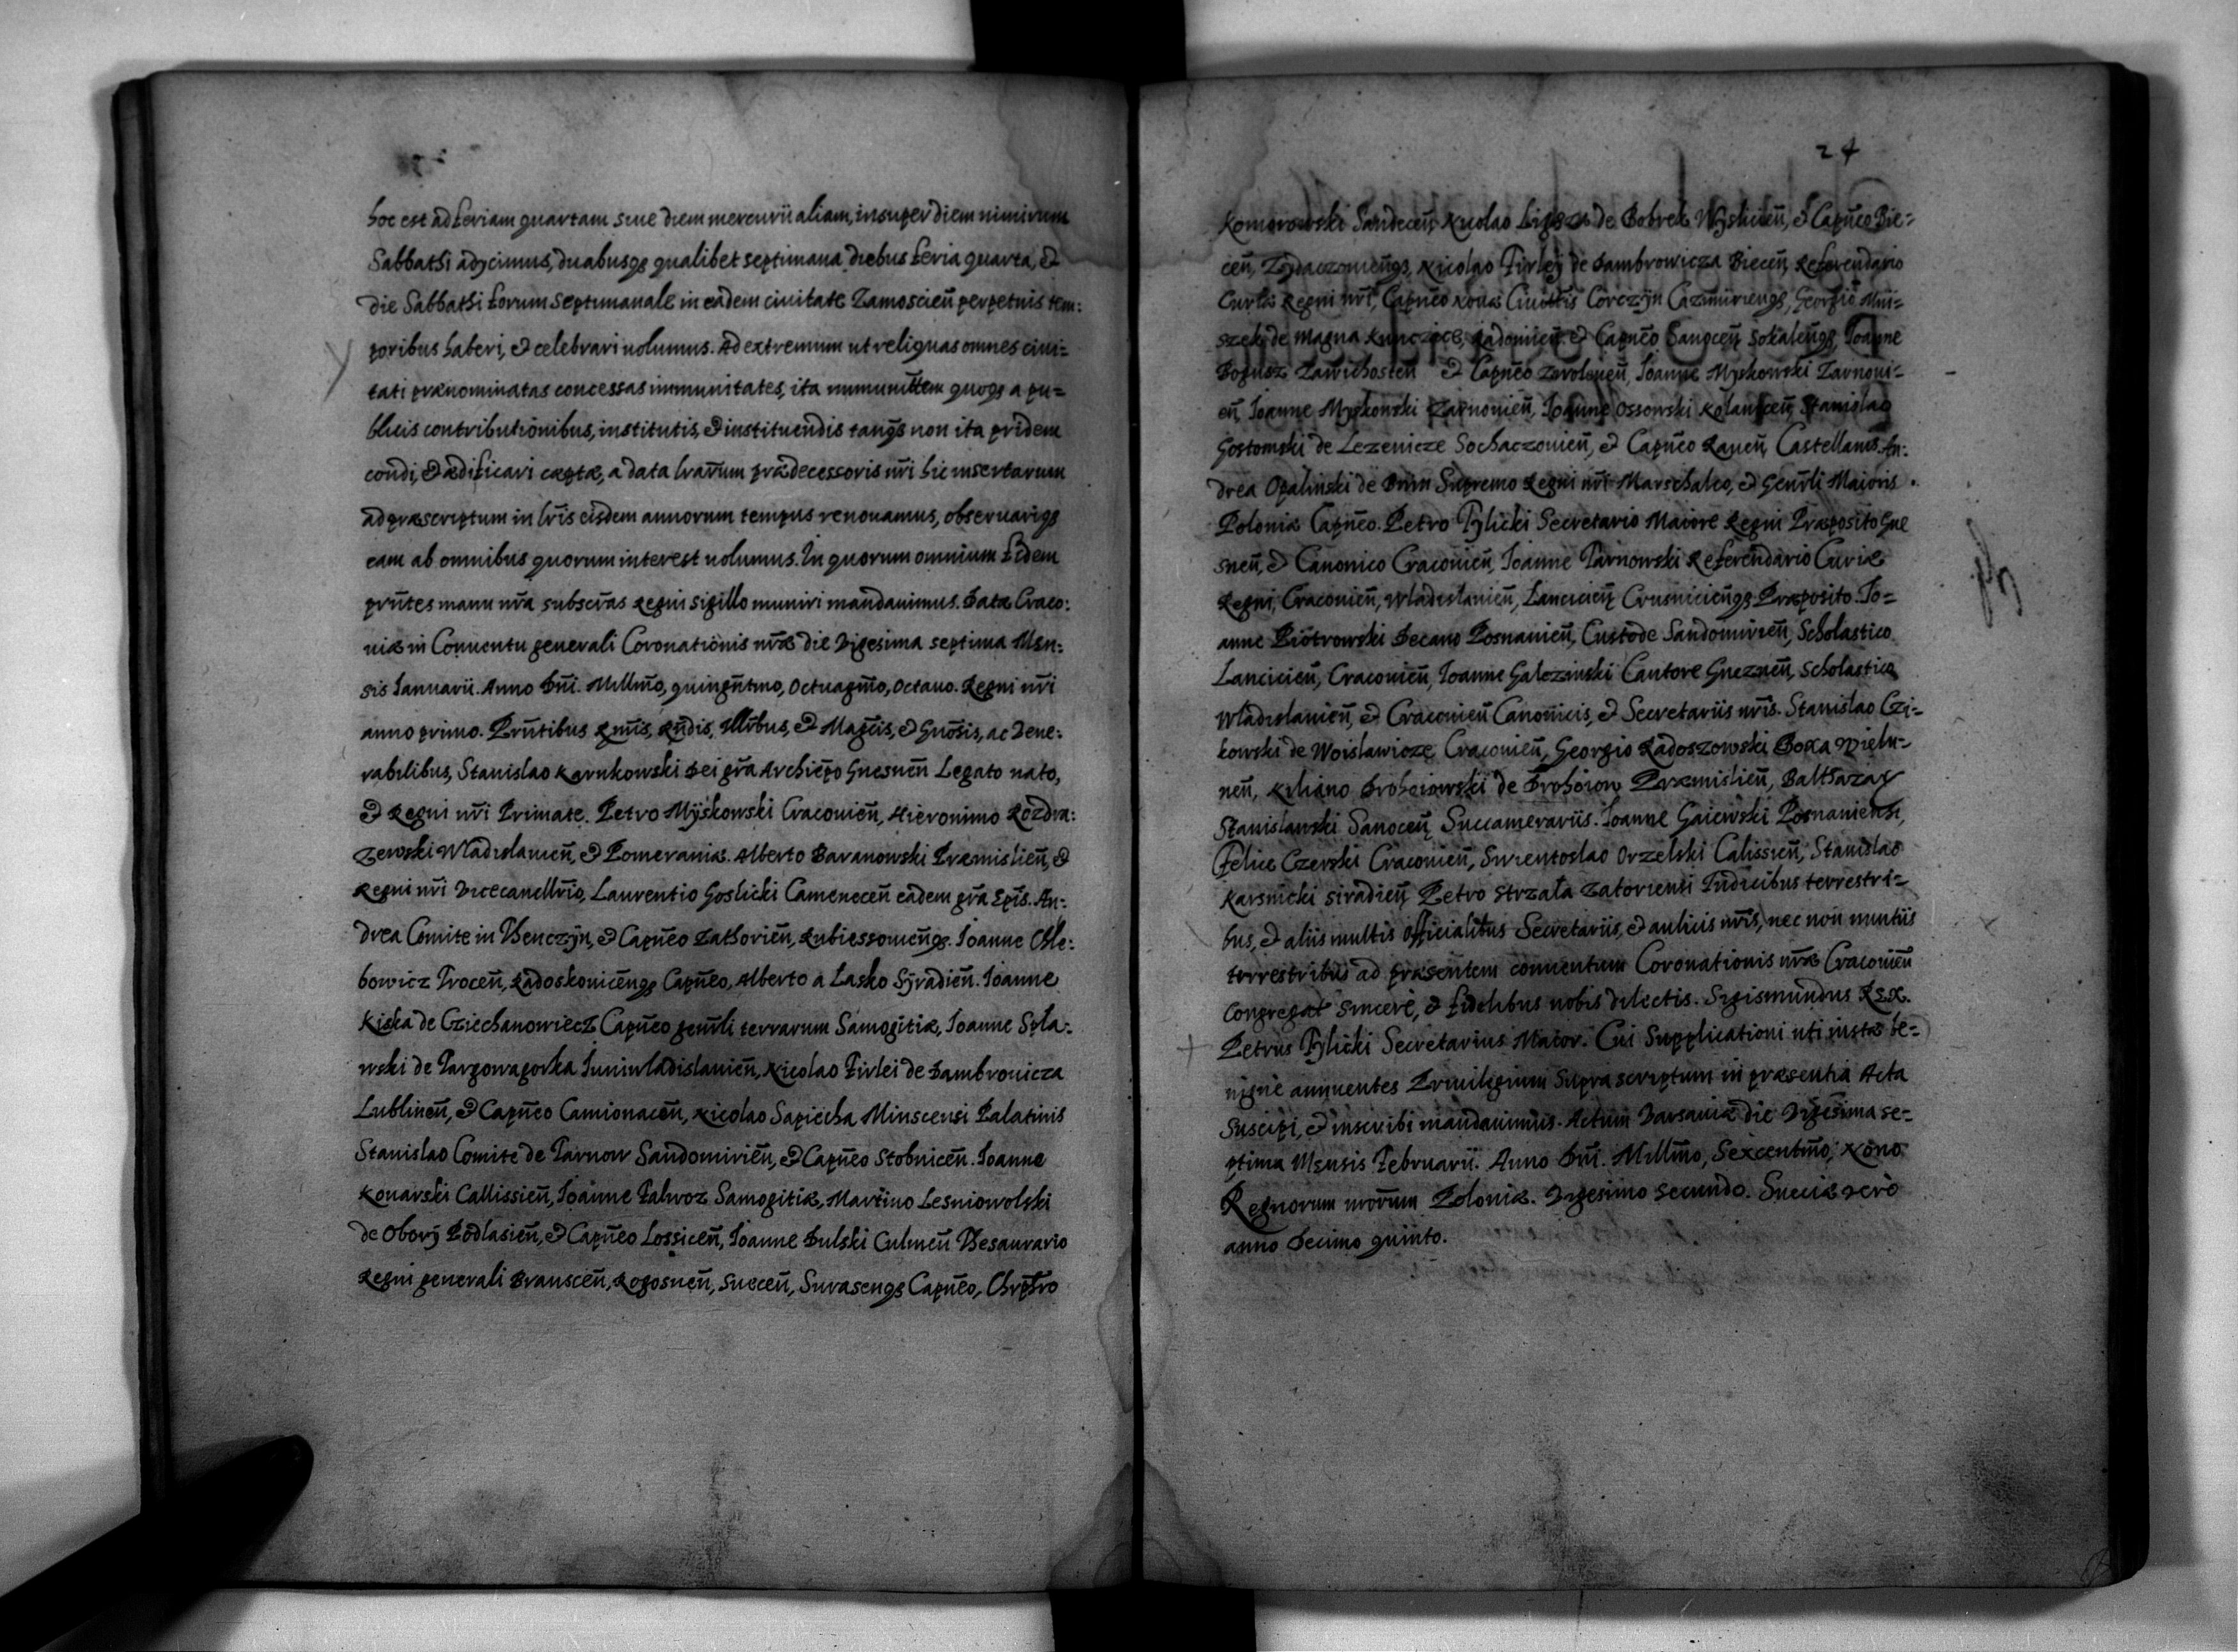 hoc est ad feriam quartam siue diem mercurii aliam, insuper diem nimirum
Sabbathi adycimus, duabusqꝫ qualibet septimana diebus feria quarta, et
die Sabbathi forum septimanale in eadem ciuitate Zamoscien̄ perpetuis tem:
poribus haberi, et celebrari uolumus. Ad extremum ut reliquas omnes ciui=
tati prænominatas concessas immunitates, ita immunit̃tem quoqꝫ a pu=
blicis contributionibus, institutis, et instituendis tanq̃ȝ non ita pridem
condi, et ædificari cæptæ, a data l̃rarum prædecessoris nr̃i hic insertarum
ad præscriptum in l̃ris eisdem annorum tempus renouamus, obseruariqꝫ
eam ab omnibus quorum interest uolumus. In quorum omnium fidem
pr̃ntes manu nr̃a subscr̃as Regni sigillo muniri mandauimus. Datæ Craco:
uiæ in Conuentu generali Coronationis nr̃æ die Vigesima septima Men:
sis Ianuarii. Anno Dn̄i. Millm̃o, quingñtmo, Octuagm̃o, Octauo. Regni nr̃i
anno primo. Prñtibus Rm̃is, Rñdis, Illr̃bus, et Magc̃is, et Gnõsis, ac Vene:
rabilibus, Stanislao Karnkowski Dei gr̃a Archiep̃o Gnesnen̄ Legato nato,
et Regni nr̃i Primate. Petro Myskowski Cracouien̄, Hieronimo Rozdra:
zewski Wladislauien̄, et Pomeraniæ. Alberto Baranowski Præmislien̄, et
Regni nr̃i Vicecancllr̃io, Laurentio Goslicki Camenecen̄ eadem gr̃a Ep̃is. An:
drea Comite in Thenczyn, et Capn̄eo Zathorien̄, Rubiessouien̄qꝫ. Ioanne Chle:
bowicz Trocen̄, Radoskouicen̄qꝫ Capn̄eo, Alberto a Lasko Syradien̄. Ioanne
Kiska de Cziechanowiecz Capn̄eo genr̃li terrarum Samogitiæ, Ioanne Spla:
wski de Targowagorka Iuniwladislauien̄, Nicolao Firlei de Dambrouicza
Lublinen̄, et Capn̄eo Camionacen̄, Nicolao Sapiecha Minscensi Palatinis
Stanislao Comite de Tarnow Sandomirien̄, et Capn̄eo Stobnicen̄. Ioanne
Konarski Callissien̄, Ioanne Talwoz Samogitiæ, Martino Lesniowolski
de Obory Podlasien̄, et Capn̄eo Lossicen̄, Ioanne Dulski Culmen̄ Thesaurario
Regni generali Branscen̄, Rogosnen̄, Suecen̄, Surasenqꝫ Capn̄eo, Chrpt̃ro
24
Komorowski Sandecen̄, Nicolao Ligęza de Bobrek Wyslicien̄, et Capn̄eo Bie=
cen̄, Zydaczouien̄qꝫ, Nicolao Firley de Dambrowicza Biecen̄ Referendario
Curiæ Regni nr̃i, Capn̄eo Nouæ Ciuitt̃is Corczyn Cazmirienqꝫ, Georgio Mni=
szek de Magna Kunczice, Radomien̄ et Capn̄eo Sanocen̄ Sokalen̄qꝫ, Ioanne
Bogusz Zawichosten̄ et Capn̄eo Zwolenen̄, Ioanne Myskowski Zarnoui=
en̄, Ioanne Myskowski Zarnouien̄, Ioanne Ossowski Stanislao
Gostomski de Lezenicze Sochaczouien̄, et Capn̄eo Rauen̄ Castellanis. An:
drea Opalinski de Bnin Supremo Regni nr̃i Marschalco, et Genr̃li Maioris
Poloniæ Capn̄eo. Petro Tylicki Secretario Maiore Regni Præposito Gne
snen̄, et Canonico Cracouien̄, Ioanne Tarnowski Referendario Curiæ
Regni, Cracouien̄, Wladislauien̄, Lancicien̄ Crusuicien̄qꝫ Præposito. Io=
anne Piotrowski Decano Posnanien̄, Custode Sandomirien̄, Scholastico
Lancicien̄, Cracouien̄, Ioanne Galczinski Cantore Gneznen̄, Scholastico
Wladislauien̄, et Cracouien̄ Canonicis, et Secretariis nr̃is. Stanislao Czi=
kowski de Woislawicze Cracouien̄, Georgio Radoszowski Boxa Vielu=
nen̄, Kiliano Drohoiowski de Drohoiow Præmislien̄, Balthazar
Stanislauski Sanocen̄ Succamerariis. Ioanne Gaiewski Posnaniensi,
Felice Czerski Cracouien̄, Swientoslao Orzelski Calissien̄, Stanislao
Karsnicki siradien̄ Petro Strzała Zatoriensi Iudicibus terrestri=
bus, et aliis multis officialibus Secretariis, et aulicis nr̃is, nec non nuntiis
terrestribus ad præsentem conuentum Coronationis nr̃æ Cracouien̄
Congregat sincere, et fidelibus nobis dilectis. Sigismundus Rex.
Petrus Tylicki Secretarius Maior. Cui Supplicationi uti iustæ be=
nigne annuentes Priuilegium supra scriptum in præsentia Acta
suscipi, et inscribi mandauimus. Actum Varsauiæ die Vigesima se=
ptima Mensis Februarii. Anno Dn̄i. Millm̃o, Sexcentm̃o, Nono
Regnorum nrõrum Poloniæ. Vigesimo secundo. Sueciæ vero
anno Decimo quinto.